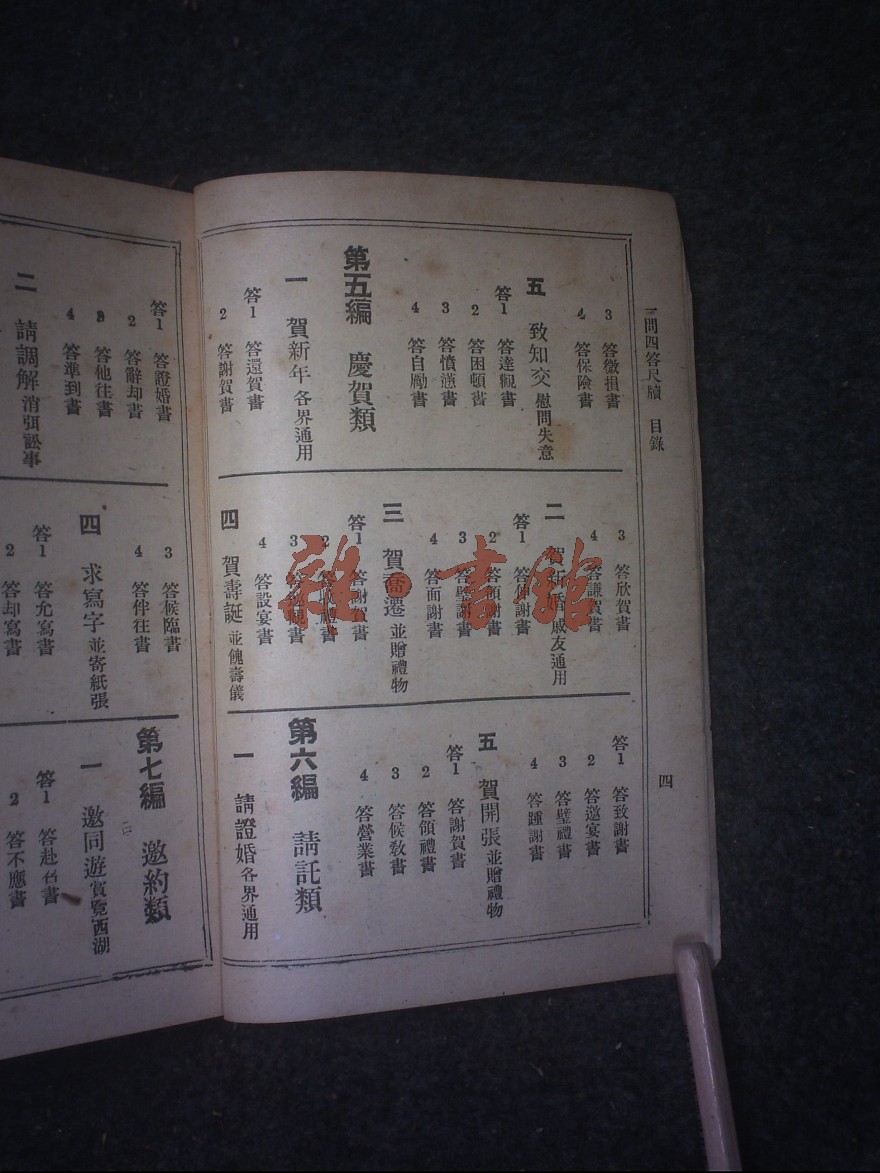 一問四答尺牘 目錄
四
3 答徵損書
4 答保險書
五 致知交 慰問失意
答1 答達觀書
2 答困頓書
3 答憤懣書
4 答自勵書
第五編 慶賀類
一 賀新年 各界通用
答1 答還賀書
2 答謝賀書
3 答欣賀書
4 答謙賀書
二 賀新婚 戚友通用
答1 答伸謝書
2 答領謝書
3 答璧謝書
4 答面謝書
三 賀喬遷 並贈禮物
答1 答謝賀書
2 書
3 書
4 答設宴書
四 賀壽誕 並餽壽儀
答1 答致謝書
2 答邀宴書
3 答璧禮書
4 答踵謝書
五 賀開張 並贈禮物
答1 答謝賀書
2 答領禮書
3 答候教書
4 答營業書
第六編 請託類
一 請證婚 各界通用
答1 答證婚書
2 答辭却書
3 答他往書
4 答準到書
二 請調解 消弭訟事
3 答候臨書
4 答伴往書
四 求寫字 並寄紙張
答1 答允寫書
2 答却寫書
第七編 邀約類
一 邀同遊 賞覽西湖
答1 答赴書
2 答不應書
雜·書館